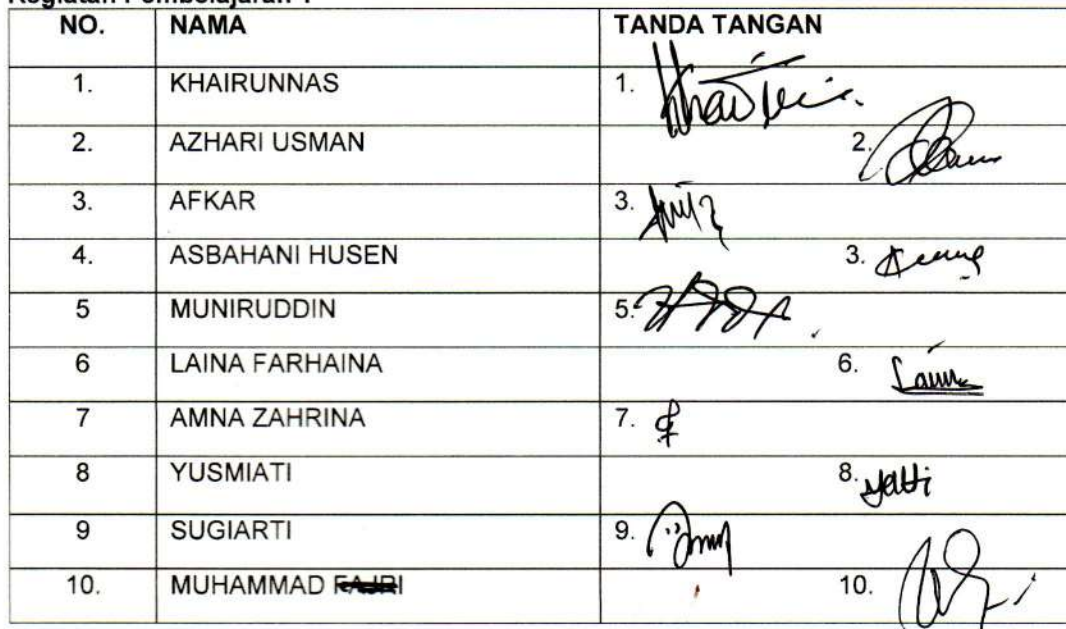 NO. NAMA TANDA TANGAN
1. KHAIRUNNAS 1.
2. AZHARI USMAN 2.
3. AFKAR 3.
4. ASBAHANI HUSEN 3.
5 MUNIRUDDIN 5.
6 LAINA FARHAINA 6.
7 AMNA ZAHRINA 7.
8 YUSMIATI 8. yatti
9 SUGIARTI 9.
10. MUHAMMAD 10.